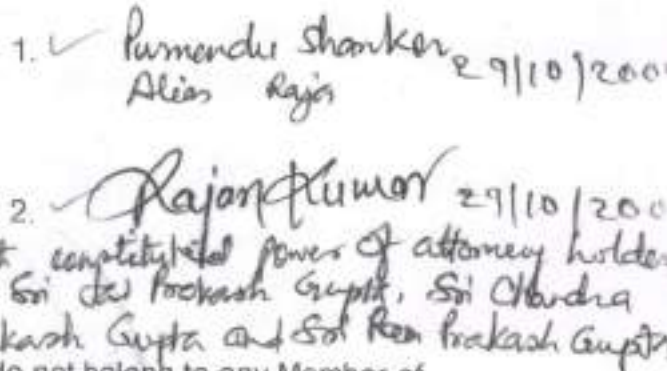 1. ✓ Purnendu Shanker 29/10/200
Alias Raja
2. ✓ Rajan Kumar 29/10/200
constituted power of attorney holder
Sri Jai Prakash Gupta, Sri Chandra
kash Gupta and Sri Ram Prakash Gupta
do not belong to any Member of